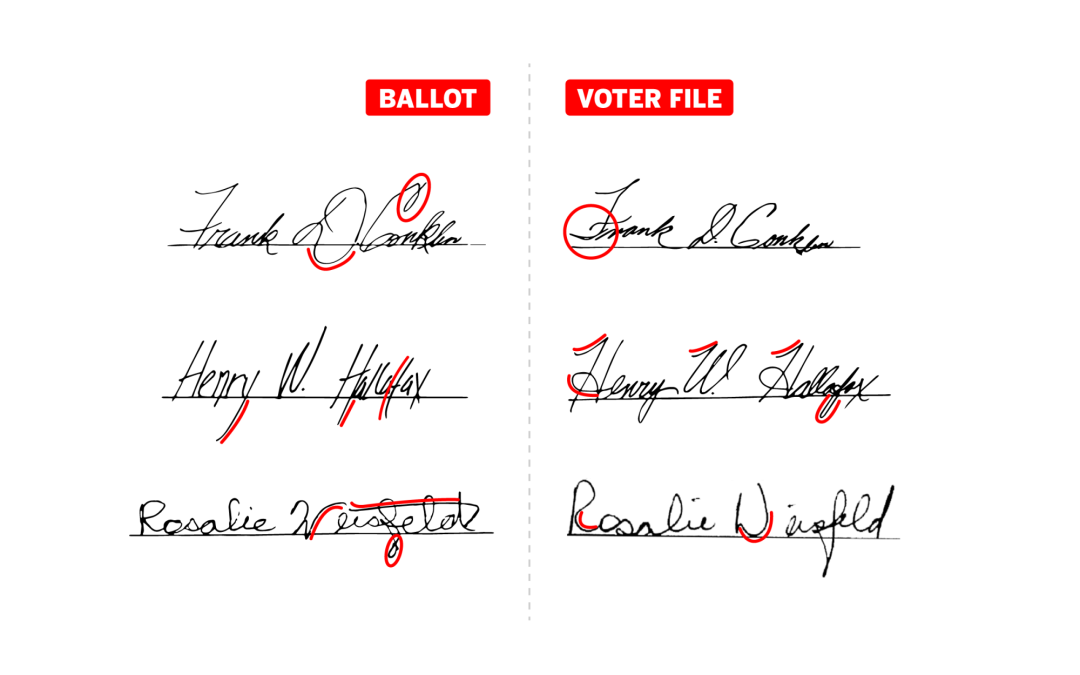 BALLOT VOTER FILE
Frank D. Conklin Frank D. Conklin
Henry W. Hallifax Henry W. Hallafax
Rosalie Weisfeld Rosalie Weisfeld